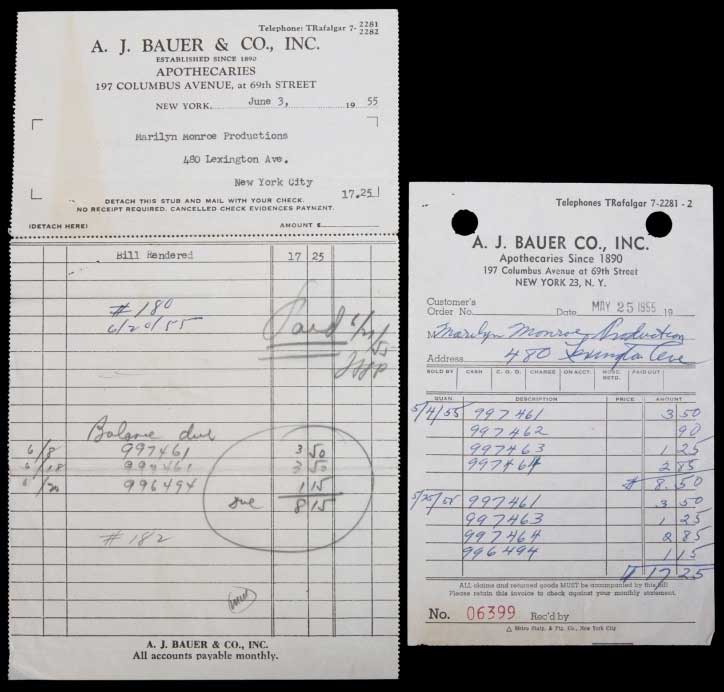 Telephone: TRafalgar 7- 2281
2282
A. J. BAUER & CO., INC.
ESTABLISHED SINCE 1890
APOTHECARIES
197 COLUMBUS AVENUE, at 69th STREET
NEW YORK, June 3, 19 55
Marilyn Monroe Productions
480 Lexington Ave.
New York City
17.25
DETACH THIS STUB AND MAIL WITH YOUR CHECK.
NO RECEIPT REQUIRED. CANCELLED CHECK EVIDENCES PAYMENT.
(DETACH HERE) AMOUNT $
Bill Rendered 17 25
# 180
6/20/55
Paid
Balance due
6/8 997461 3 50
6/18 997461 3 50
6/20 996494 1 15
due 8 15
# 182
A. J. BAUER & CO., INC.
All accounts payable monthly.
Telephones TRafalgar 7-2281 - 2
A. J. BAUER CO., INC.
Apothecaries Since 1890
197 Columbus Avenue at 69th Street
NEW YORK 23, N. Y.
Customer's
Order No. Date MAY 25 1955 19
M Marilyn Monroe Production
Address 480 Lexington Ave
SOLD BY CASH C. O. D. CHARGE ON ACCT. MDSE. RETD. PAID OUT
QUAN. DESCRIPTION PRICE AMOUNT
5/4/55 997461 3 50
997462 90
997463 1 25
997464 2 85
# 8.50
5/25/55 997461 3 50
997463 1 25
997464 2 85
996494 1 15
17 25
ALL claims and returned goods MUST be accompanied by this bill
Please retain this invoice to check against your monthly statement.
No. 06399 Rec'd by